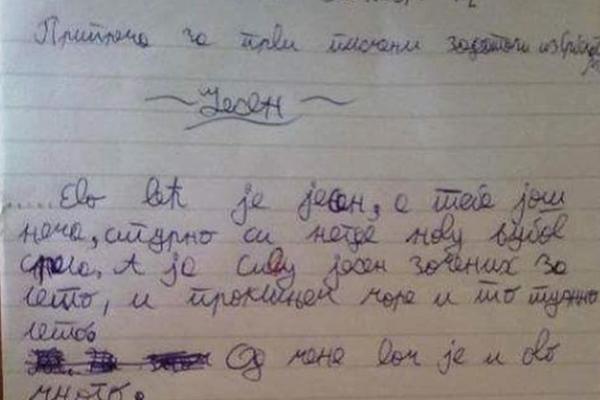 Припрема за први писмени задатак из српског
Јесен
.....Ево већ је јесен, а тебе још
нема, сигурно си негде нову љубав
срела. А ја сиву јесен замених за
лето, и проклињем море и то тужно
лето.
Од мене вам је и ово
много.